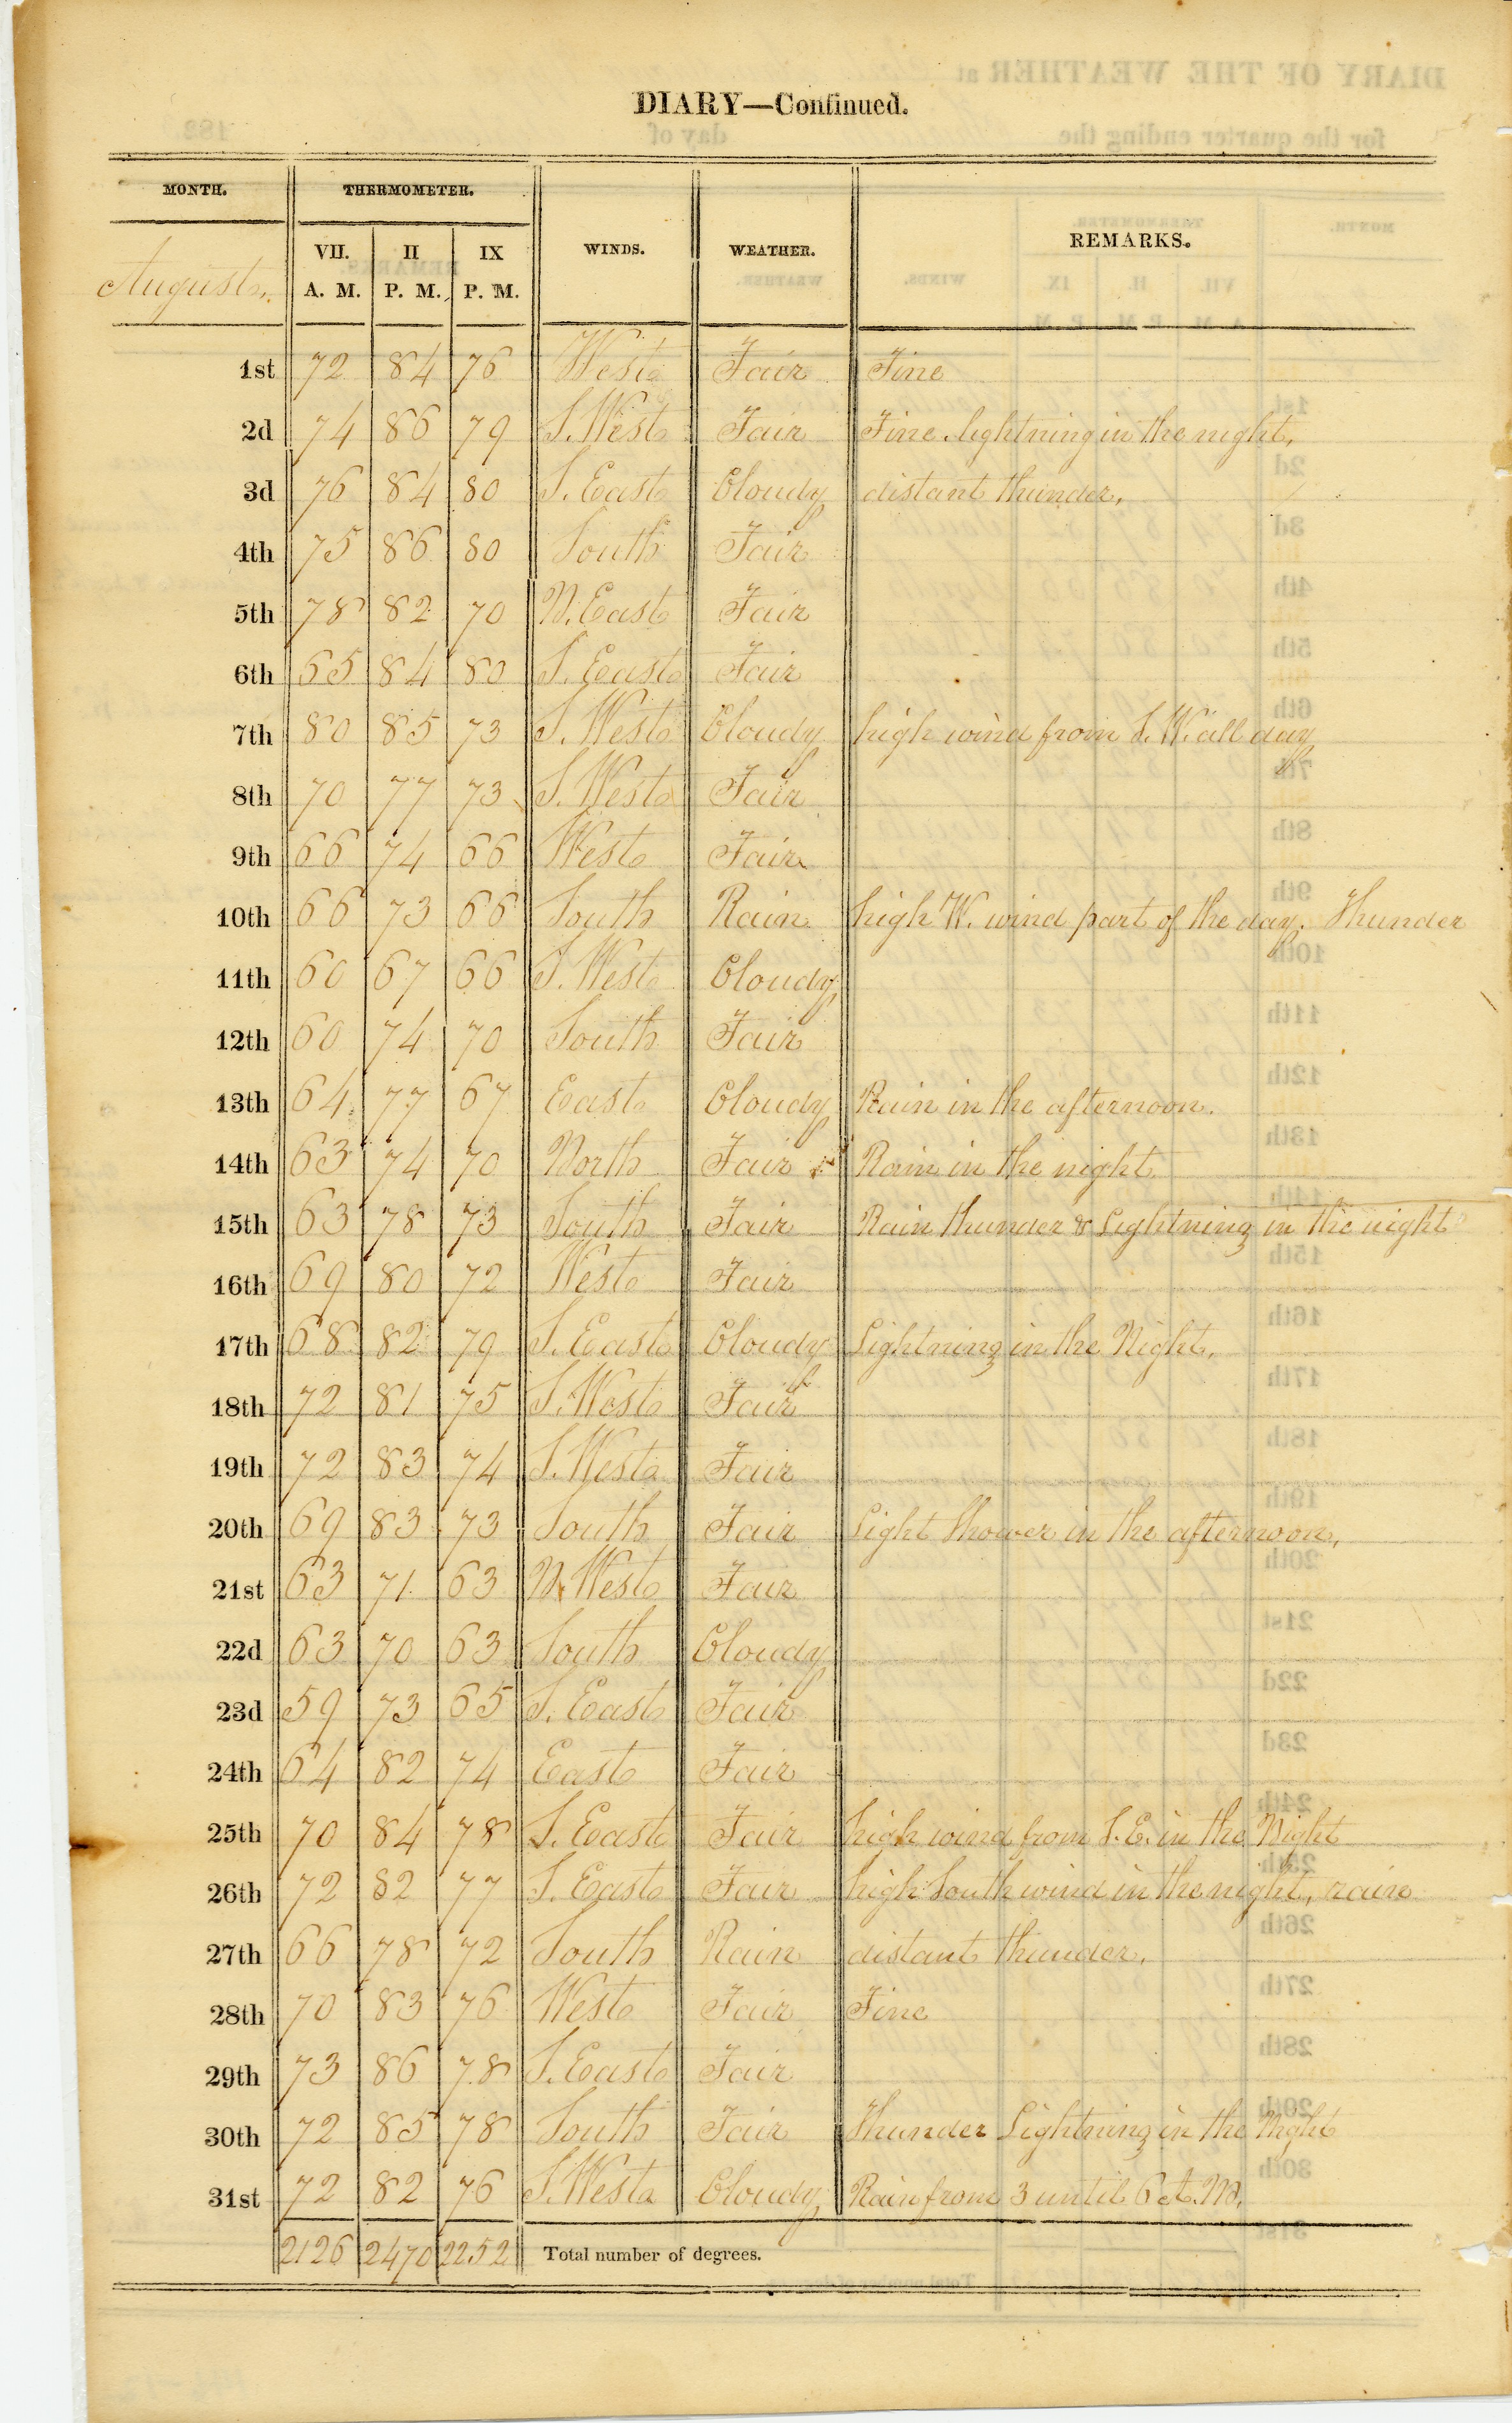 DIARY—Continued.
MONTH. THERMOMETER. WINDS. WEATHER. REMARKS.
August. VII. A. M. II P. M. IX P. M.
1st 72 84 76 West Fair Fine
2d 74 86 79 S. West Fair Fine. lightning in the night,
3d 76 84 80 S. East Cloudy distant thunder,
4th 75 86 80 South Fair
5th 78 82 70 N. East Fair
6th 65 84 80 S. East Fair
7th 80 85 73 S. West Cloudy high wind from S. W. all day
8th 70 77 73 S. West Fair
9th 66 74 66 West Fair
10th 66 73 66 South Rain high W. wind part of the day. Thunder
11th 60 67 66 S. West Cloudy
12th 60 74 70 South Fair
13th 64 77 67 East Cloudy Rain in the afternoon.
14th 63 74 70 North Fair Rain in the night.
15th 63 78 73 South Fair Rain thunder & Lightning in the night
16th 69 80 72 West Fair
17th 68 82 79 S. East Cloudy Lightning in the Night,
18th 72 81 75 S. West Fair
19th 72 83 74 S. West Fair
20th 69 83 73 South Fair Light Shower in the afternoon,
21st 63 71 63 N. West Fair
22d 63 70 63 South Cloudy
23d 59 73 65 S. East Fair
24th 64 82 74 East Fair
25th 70 84 78 S. East Fair high wind from S. E. in the Night
26th 72 82 77 S. East Fair high South wind in the night, rain
27th 66 78 72 South Rain distant thunder,
28th 70 83 76 West Fair Fine
29th 73 86 78 S. East Fair
30th 72 85 78 South Fair Thunder Lightning in the Night
31st 72 82 76 S. West Cloudy Rain from 3 until 6 A. M.
2126 2470 2252 Total number of degrees.